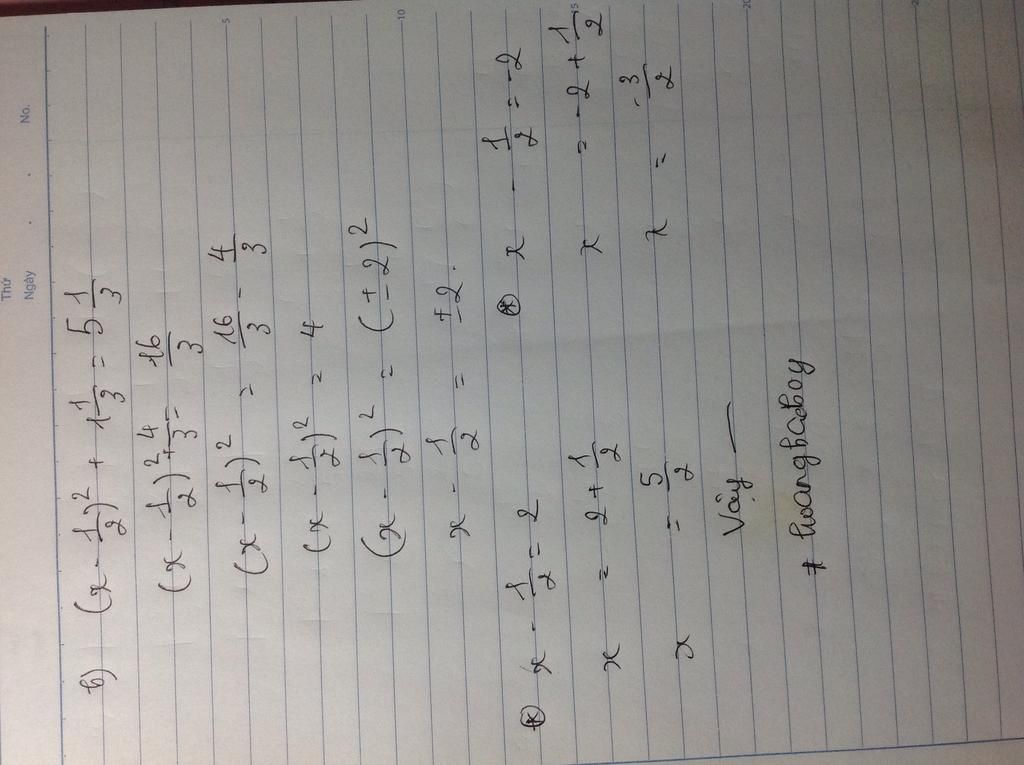 Thứ
Ngày . . No.
b) (x - 1/2)² + 1 1/3 = 5 1/3
(x - 1/2)² + 4/3 = 16/3
(x - 1/2)² = 16/3 - 4/3
(x - 1/2)² = 4
(x - 1/2)² = (±2)²
x - 1/2 = ±2.
⊛ x - 1/2 = 2 ⊛ x - 1/2 = -2
x = 2 + 1/2 x = -2 + 1/2
x = 5/2 x = -3/2
Vậy —
# hoangbadboy
5
10
15
20